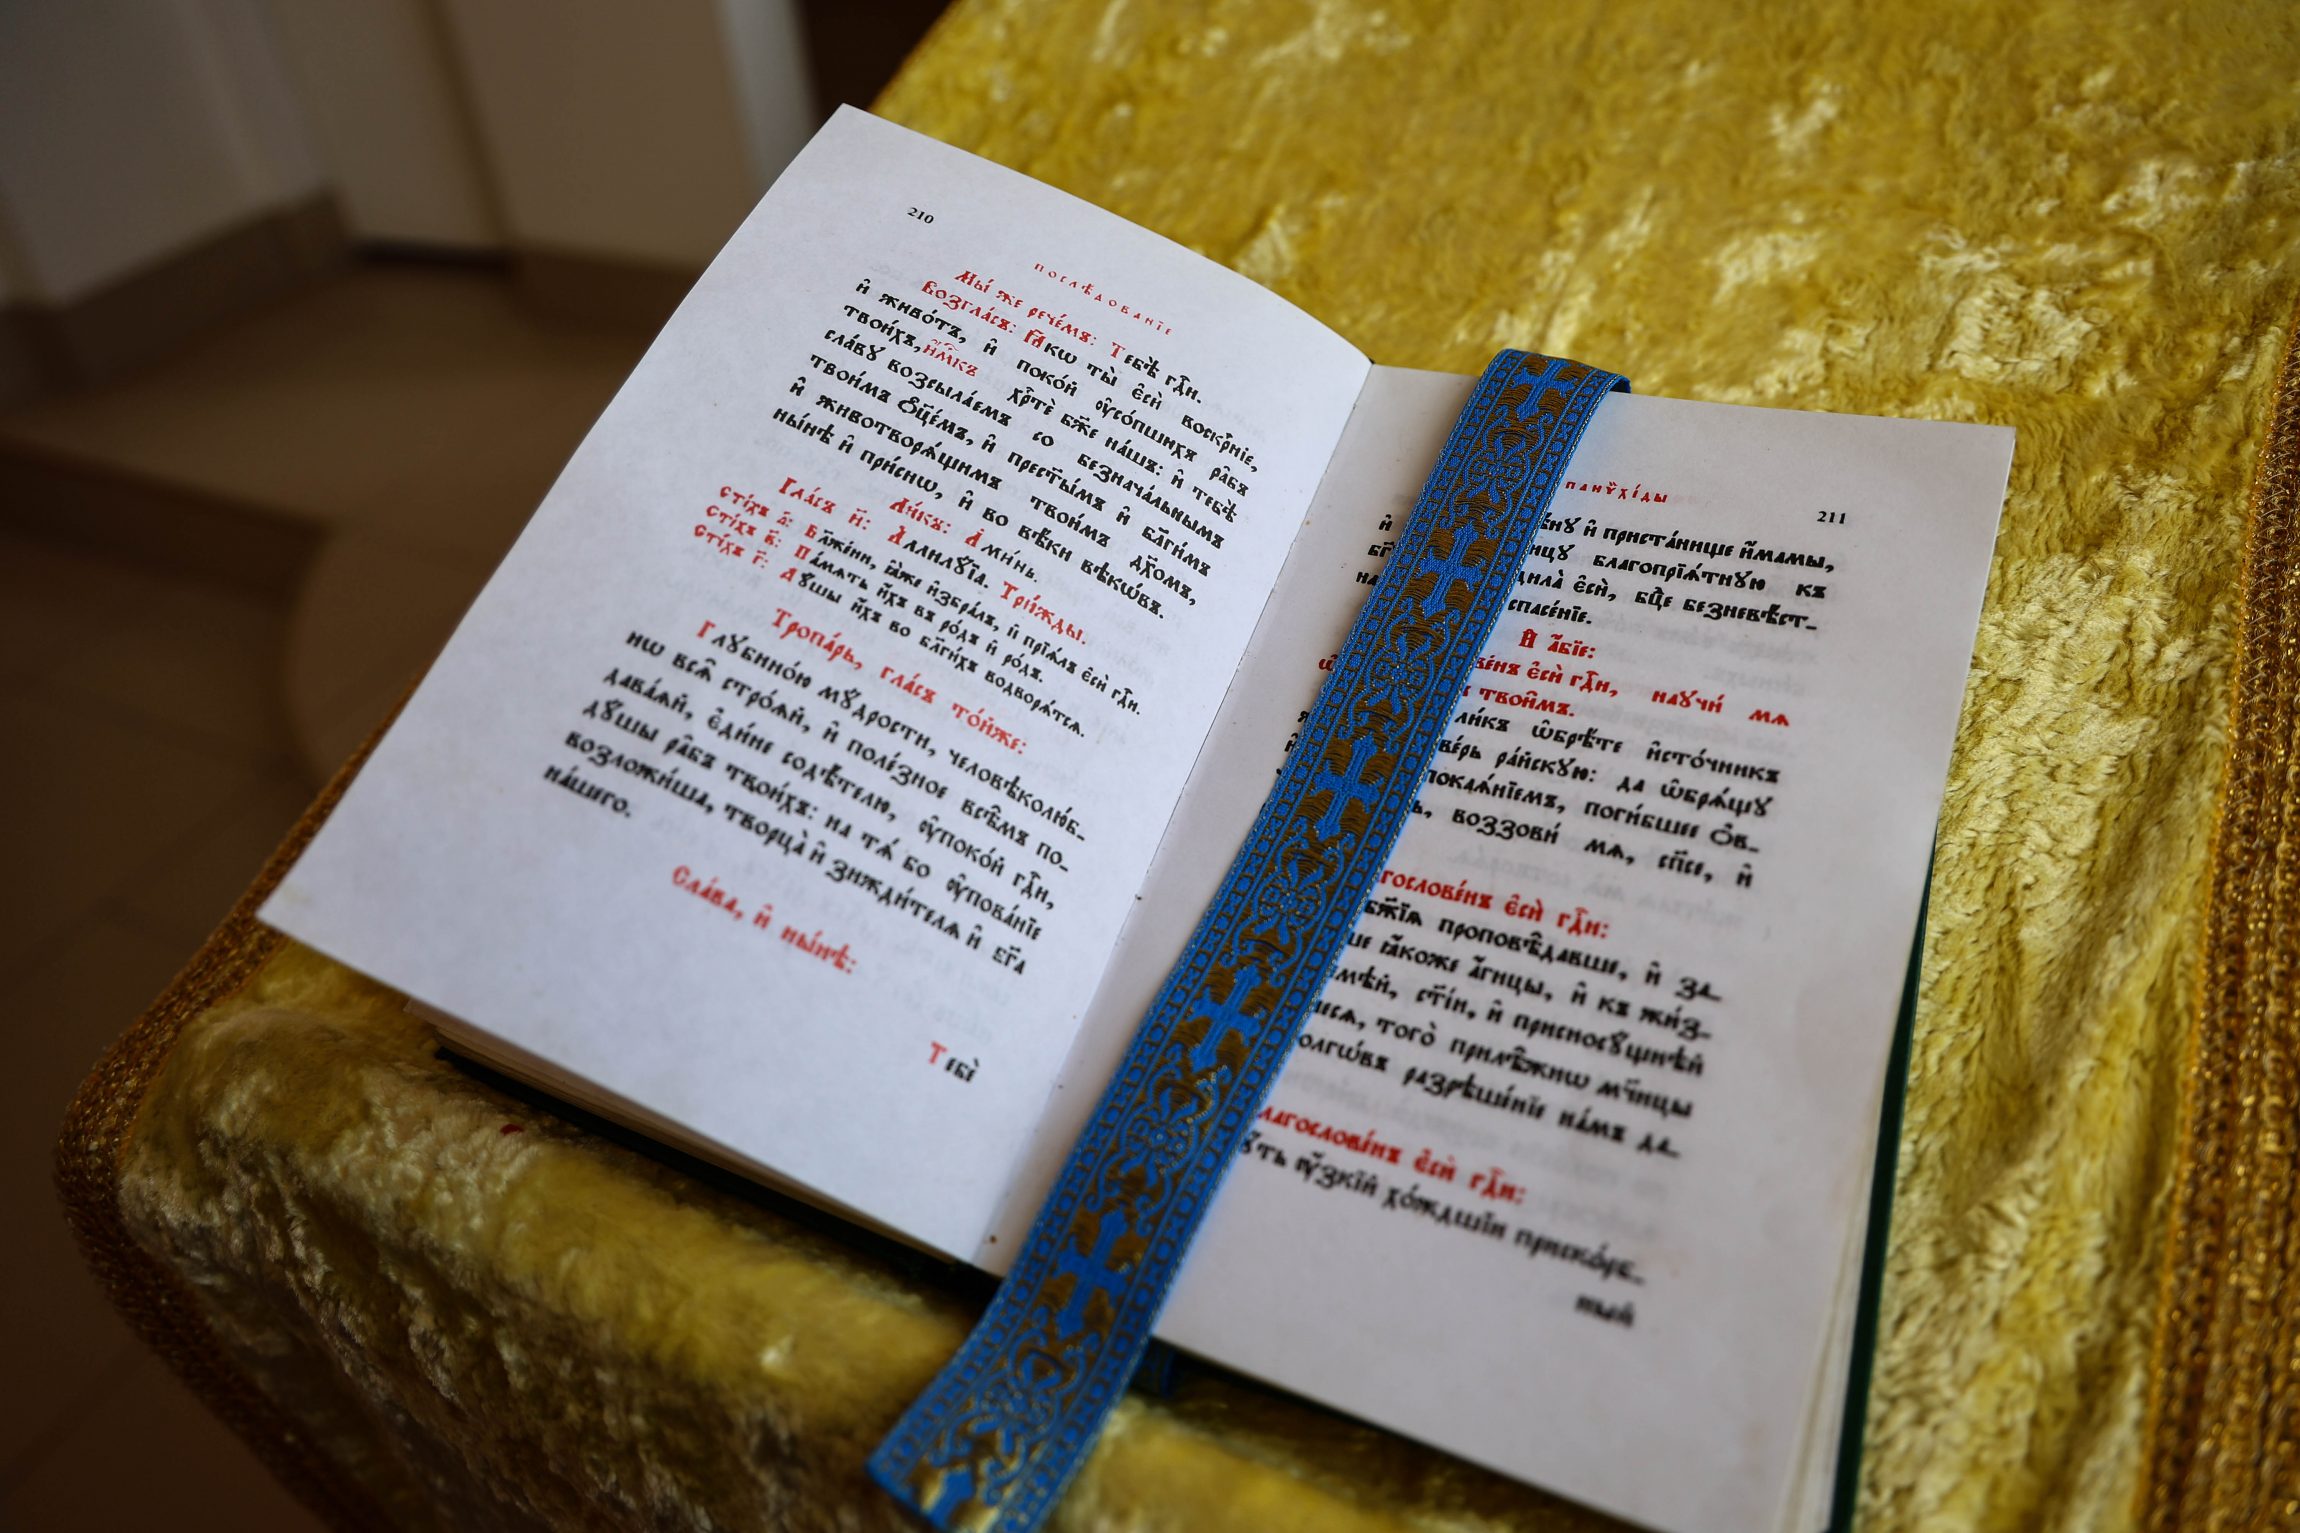 210
послѣдованїе
Мы́ же рече́мъ: Тебѣ̀ гдⷭ҇и.
Возгла́съ: Ꙗ҆́кѡ ты̀ є҆сѝ воскрⷭ҇нїе,
и҆ живо́тъ, и҆ поко́й ᲂу҆со́пшихъ ра̑бъ
твои́хъ, и҆́м҃къ хрⷭ҇тѐ бж҃е на́шъ: и҆ тебѣ̀
сла́вꙋ возсыла́емъ со безнача́льнымъ
твои́мъ ѻ҆ц҃е́мъ, и҆ прест҃ы́мъ и҆ бл҃ги́мъ
и҆ животворѧ́щимъ твои́мъ дх҃омъ,
ны́нѣ и҆ при́снѡ, и҆ во вѣ́ки вѣкѡ́въ.
Ли́къ: А҆ми́нь.
Гла́съ и҃: А҆ллилꙋ́їа. Три́жды.
Сті́хъ а҃: Бл҃же́ни, ꙗ҆̀же и҆збра́лъ, и҆ прїѧ́лъ є҆сѝ гдⷭ҇и.
Сті́хъ в҃: Па́мѧть и҆́хъ въ ро́дъ и҆ ро́дъ.
Сті́хъ г҃: Дꙋ́шы и҆́хъ во бл҃ги́хъ водворѧ́тсѧ.
Тропа́рь, гла́съ то́йже:
Глꙋбино́ю мꙋ́дрости, человѣколю́б-
нѡ всѧ̑ стро́ѧй, и҆ поле́зное всѣ̑мъ по-
дава́ѧй, є҆ди́не содѣ́телю, ᲂу҆поко́й гдⷭ҇и,
дꙋ́шы ра̑бъ твои́хъ: на тѧ́ бо ᲂу҆пова́нїе
возложи́ша, творца̀ и҆ зижди́телѧ и҆ бг҃а
на́шего.
Сла́ва, и҆ ны́нѣ:
Тебѐ
панѷхі́ды
211
и҆ е́нꙋ и҆ приста́нище и҆́мамы,
благопрїѧ́тнꙋю къ
є҆сѝ, бц҃е безневѣ́ст-
спасе́нїе.
И҆ а҆́бїе:
є҆сѝ гдⷭ҇и, наꙋчи́ мѧ
твои̑мъ.
ли́къ ѡ҆брѣ́те и҆сто́чникъ
ве́рь ра́йскꙋю: да ѡ҆брѧ́щꙋ
покаѧ́нїемъ, поги́бшее ѻ҆в-
воззови́ мѧ, сп҃се, и҆
є҆сѝ гдⷭ҇и:
бж҃їѧ проповѣ́давше, и҆ за-
ꙗ҆́коже а҆́гнцы, и҆ къ жи́з-
ст҃і́и, и҆ присносꙋ́щнѣй
того̀ прилѣ́жнѡ мч҃ницы
разрѣше́нїе на́мъ да-
є҆сѝ гдⷭ҇и:
ᲂу҆́зкїй хо́ждшїи приско́рб-
ный